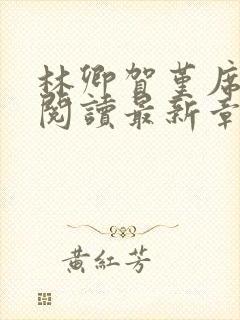 林卿賀堇席
閱讀最新章
黃紅芳